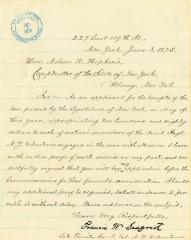 227 East 109th St.
New York, June 3, 1875.
Hon. Nelson K. Hopkins,
Comptroller of the State of New York,
Albany, New York.
Sir:— As an applicant for the benefits of the
law passed by the Legislature of New York in May of
this year, appropriating two hundred and eighty
dollars to each of certain members of the
N.Y. Volunteers engaged in the war with I have
with perfect proofs of such service on my part, and res-
pectfully request that you will lay application before the
Commissioners for their favorable consideration. Should
any additional proof be required, I shall endeavor to fur-
nish it without delay. Please address, on the subject,
Yours Very Respectfully,
Francis W.
Late Private Co. N.Y. Volunteers